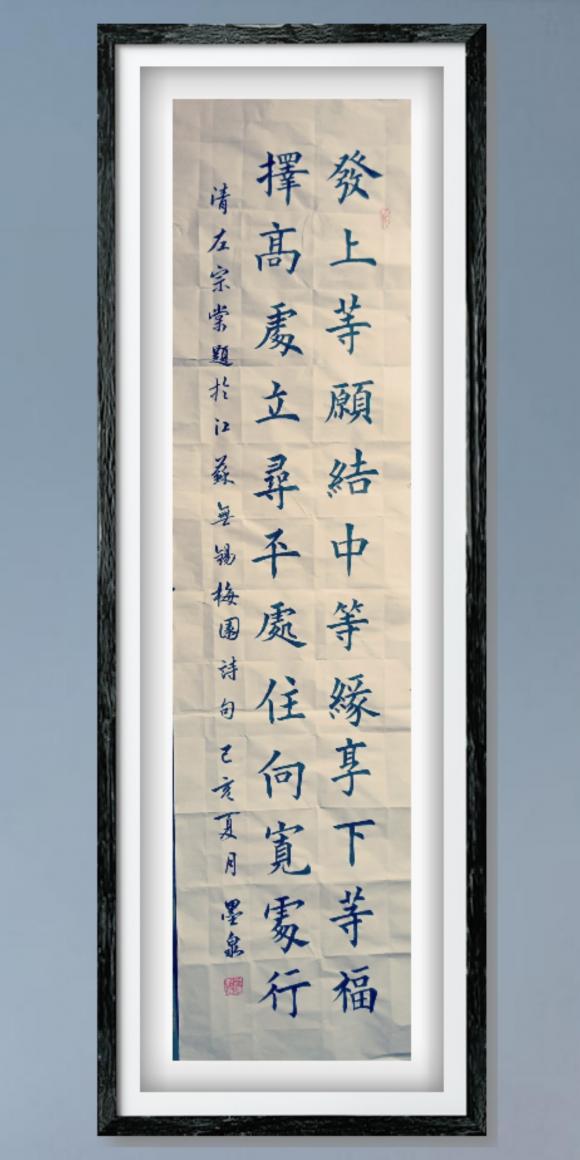 發上等願結中等緣享下等福
擇高處立尋平處住向寬處行
清左宗棠題於江蘇無錫梅園詩句 己亥夏月 墨泉